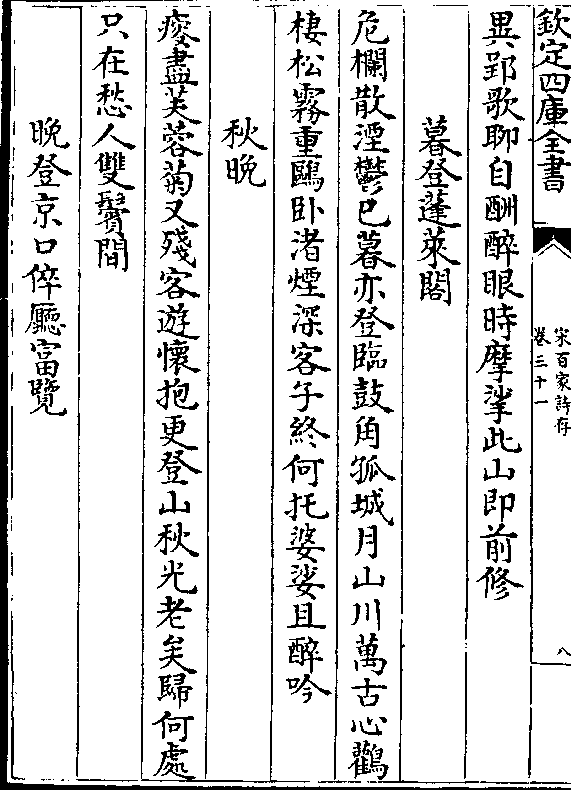 欽定四庫全書
宋百家詩存
卷三十一
八
異郢歌聊自酬醉眼時摩挲此山即前修
暮登蓬萊閣
危欄散湮鬱已暮亦登臨鼓角孤城月山川萬古心鸛
棲松霧重鷗卧渚煙深客子終何托婆娑且醉吟
秋晚
瘦盡芙蓉菊又殘客遊懷抱更登山秋光老矣歸何處
只在愁人雙鬢間
晚登京口倅廳富覽